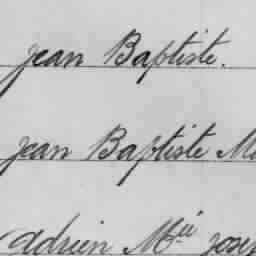 Jean Baptiste.
Jean Baptiste
Adrien M^ie